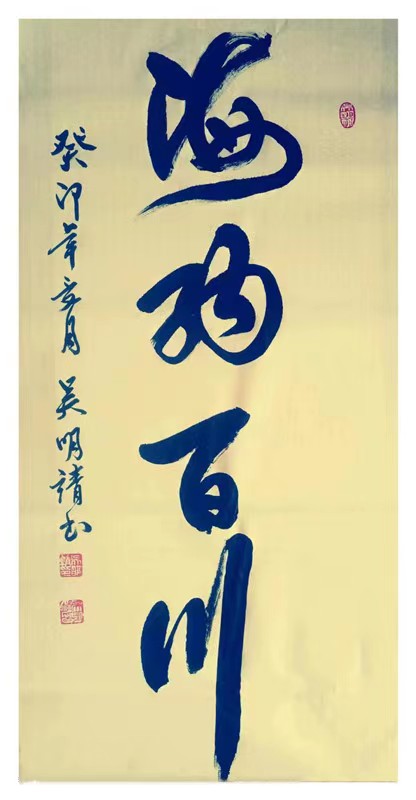 海纳百川
癸卯年月 吴明书